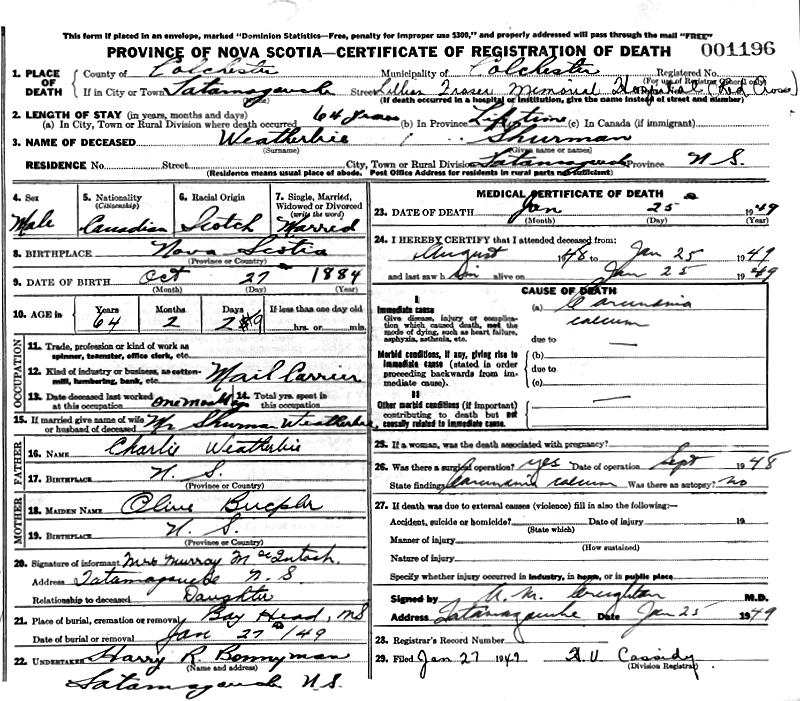 This form if placed in an envelope, marked "Dominion Statistics—Free, penalty for improper use $300," and properly addressed will pass through the mail "FREE"
PROVINCE OF NOVA SCOTIA—CERTIFICATE OF REGISTRATION OF DEATH 001196
1. PLACE OF DEATH County of Colchester Municipality of Colchester Registered No.
(For use of Registrar General only)
If in City or Town Tatamagouche Street Lillian Fraser Memorial Hospital (Red Cross)
(If death occurred in a hospital or institution, give the name instead of street and number)
2. LENGTH OF STAY (in years, months and days)
(a) In City, Town or Rural Division where death occurred 64 years (b) In Province Lifetime (c) In Canada (if immigrant)
3. NAME OF DECEASED Weatherbie Shurman
(Surname) (Given name or names)
RESIDENCE No. Street City, Town or Rural Division Tatamagouche Province N.S.
(Residence means usual place of abode. Post Office Address for residents in rural parts not sufficient)
4. Sex Male
5. Nationality (Citizenship) Canadian
6. Racial Origin Scotch
7. Single, Married, Widowed or Divorced (write the word) Married
8. BIRTHPLACE Nova Scotia
(Province or Country)
9. DATE OF BIRTH Oct 27 1884
(Month) (Day) (Year)
10. AGE in Years Months Days If less than one day old
64 2 hrs. or min.
OCCUPATION
11. Trade, profession or kind of work as spinner, teamster, office clerk, etc.
12. Kind of industry or business, as cotton-mill, lumbering, bank, etc. Mail Carrier
13. Date deceased last worked at this occupation one month 14. Total yrs. spent in this occupation
15. If married give name of wife or husband of deceased Shurman Weatherbie
FATHER
16. Name Charlie Weatherbie
17. Birthplace N.S.
(Province or Country)
MOTHER
18. MAIDEN NAME Olive
19. BIRTHPLACE N.S.
(Province or Country)
20. Signature of informant Mrs Murray McIntosh
Address Tatamagouche N.S.
Relationship to deceased Daughter
21. Place of burial, cremation or removal Bay Head, NS
Date of burial or removal Jan 27 /49
22. UNDERTAKER Harry R. Bonnyman
(Name and address)
Tatamagouche N.S.
MEDICAL CERTIFICATE OF DEATH
23. DATE OF DEATH Jan 25 1949
(Month) (Day) (Year)
24. I HEREBY CERTIFY that I attended deceased from:
August 1948 to Jan 25 1949
and last saw him alive on Jan 25 1949
CAUSE OF DEATH
I
Immediate cause
Give disease, injury or complication which caused death, not the mode of dying, such as heart failure, asphyxia, asthenia, etc.
(a) Carcinoma
caecum
due to —
Morbid conditions, if any, giving rise to immediate cause (stated in order proceeding backwards from immediate cause).
(b)
due to
(c)
II
Other morbid conditions (if important) contributing to death but not causally related to immediate cause. —
25. If a woman, was the death associated with pregnancy?
26. Was there a surgical operation? yes Date of operation Sept 1948
State findings Carcinoma caecum Was there an autopsy? no
27. If death was due to external causes (violence) fill in also the following:—
Accident, suicide or homicide? Date of injury 19
(State which)
Manner of injury
(How sustained)
Nature of injury
Specify whether injury occurred in industry, in home, or in public place
Signed by Creighton M.D.
Address Tatamagouche Date Jan 25 1949
28. Registrar's Record Number
29. Filed Jan 27 1949 Cassidy
(Division Registrar)